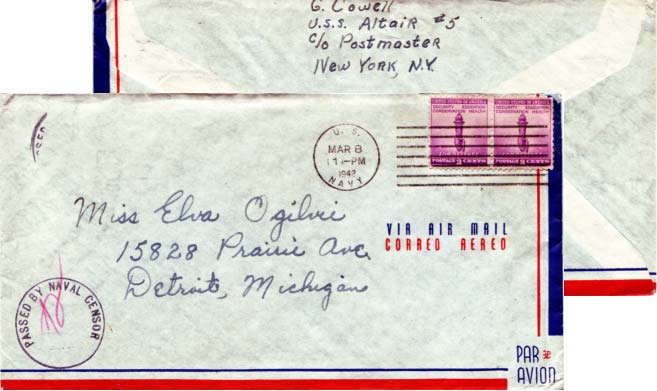 G. Cowell
U.S.S. Altair #5
c/o Postmaster
New York, N.Y.
U. S.
MAR 8
1942
NAVY
UNITED STATES OF AMERICA UNITED STATES OF AMERICA
SECURITY EDUCATION SECURITY EDUCATION
CONSERVATION HEALTH CONSERVATION HEALTH
FOR DEFENSE FOR DEFENSE
POSTAGE 3 CENTS POSTAGE 3 CENTS
Miss Elva Ogilvie
15828 Prairie Ave.
Detroit, Michigan
VIA AIR MAIL
CORREO AEREO
PASSED BY NAVAL CENSOR
PAR
AVION